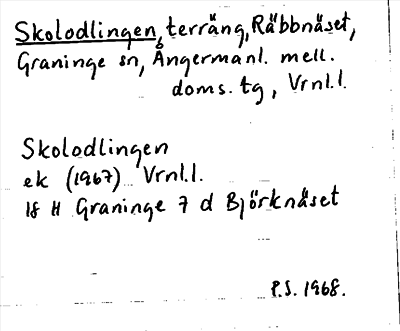 Skolodlingen, terräng, Räbbnäset,
Graninge sn, Ångermanl. mell.
doms. tg, Vrnl.l.
Skolodlingen
ek (1967) Vrnl.l.
18 H Graninge 7 d Björknäset
P.S. 1968.